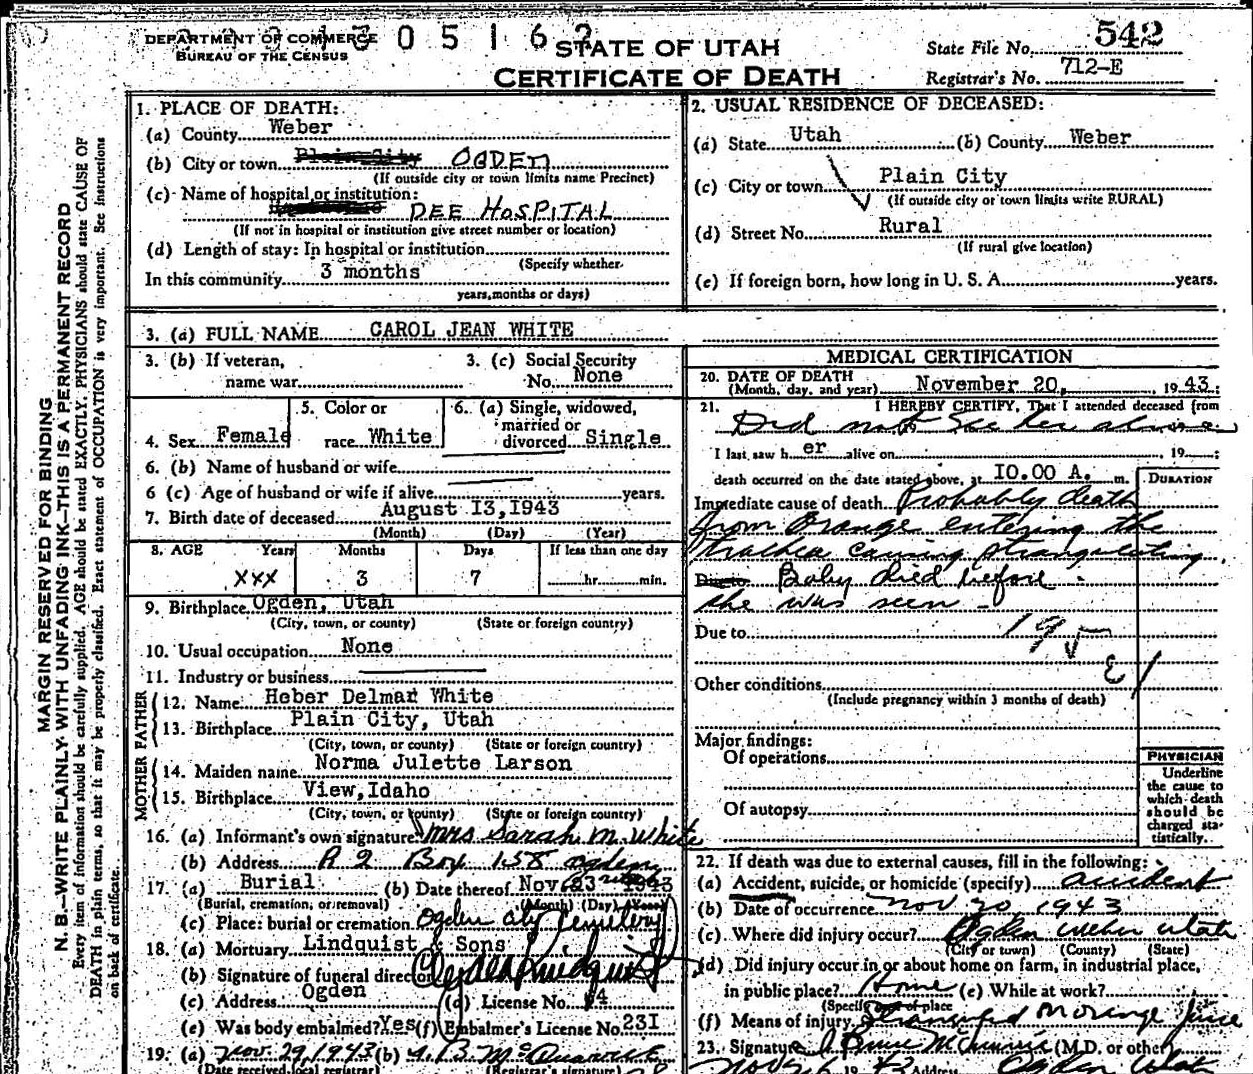 DEPARTMENT OF COMMERCE
BUREAU OF THE CENSUS
0 5 1 6 2
STATE OF UTAH
CERTIFICATE OF DEATH
State File No. 542
Registrar's No. 712-E
MARGIN RESERVED FOR BINDING
N. B.—WRITE PLAINLY WITH UNFADING INK—THIS IS A PERMANENT RECORD
Every item of information should be carefully supplied. AGE should be stated EXACTLY. PHYSICIANS should state CAUSE OF
DEATH in plain terms, so that it may be properly classified. Exact statement of OCCUPATION is very important. See instructions
on back of certificate.
1. PLACE OF DEATH:
(a) County Weber
(b) City or town Plain City OGDEN
(If outside city or town limits name Precinct)
(c) Name of hospital or institution:
DEE HOSPITAL
(If not in hospital or institution give street number or location)
(d) Length of stay: In hospital or institution
(Specify whether
In this community 3 months
years, months or days)
2. USUAL RESIDENCE OF DECEASED:
(a) State Utah (b) County Weber
(c) City or town Plain City
(If outside city or town limits write RURAL)
(d) Street No. Rural
(If rural give location)
(e) If foreign born, how long in U. S. A. years.
3. (a) FULL NAME CAROL JEAN WHITE
3. (b) If veteran,
name war
3. (c) Social Security
No. None
4. Sex Female
5. Color or
race White
6. (a) Single, widowed,
married or
divorced Single
6. (b) Name of husband or wife
6 (c) Age of husband or wife if alive years.
7. Birth date of deceased August I3,1943
(Month) (Day) (Year)
8. AGE Years Months Days If less than one day
XXX 3 7 hr. min.
9. Birthplace Ogden, Utah
(City, town, or county) (State or foreign country)
10. Usual occupation None
11. Industry or business
FATHER
12. Name Heber Delmar White
13. Birthplace Plain City, Utah
(City, town, or county) (State or foreign country)
MOTHER
14. Maiden name Norma Julette Larson
15. Birthplace View,Idaho
(City, town, or county) (State or foreign country)
16. (a) Informant's own signature Mrs Sarah M. White
(b) Address R 2 Box 158 Ogden
17. (a) Burial (b) Date thereof Nov 23 1943
(Burial, cremation, or removal) (Month) (Day) (Year)
(c) Place: burial or cremation Ogden City Cemetery
18. (a) Mortuary Lindquist & Sons
(b) Signature of funeral director
(c) Address Ogden (d) License No. 4
(e) Was body embalmed? Yes (f) Embalmer's License No. 23I
19. (a) Nov. 29, 1943 (b)
(Date received local registrar) (Registrar's signature)
MEDICAL CERTIFICATION
20. DATE OF DEATH
(Month, day, and year) November 20, 1943
21. I HEREBY CERTIFY, That I attended deceased from
Did not see her alive
I last saw h er alive on , 19
death occurred on the date stated above, at I0.00 A. m.
DURATION
Immediate cause of death Probably death
from orange entering the
trachea causing strangulating.
Baby died before
she was seen -
Due to
195
E1
Other conditions
(Include pregnancy within 3 months of death)
Major findings:
Of operations
Of autopsy
PHYSICIAN
Underline
the cause to
which death
should be
charged sta-
tistically.
22. If death was due to external causes, fill in the following:
(a) Accident, suicide, or homicide (specify) accident
(b) Date of occurrence Nov 20 1943
(c) Where did injury occur? Ogden Weber Utah
(City or town) (County) (State)
(d) Did injury occur in or about home on farm, in industrial place,
in public place? Home (e) While at work?
(Specify type of place
(f) Means of injury orange juice
23. Signature (M.D. or other)
Address Ogden Utah